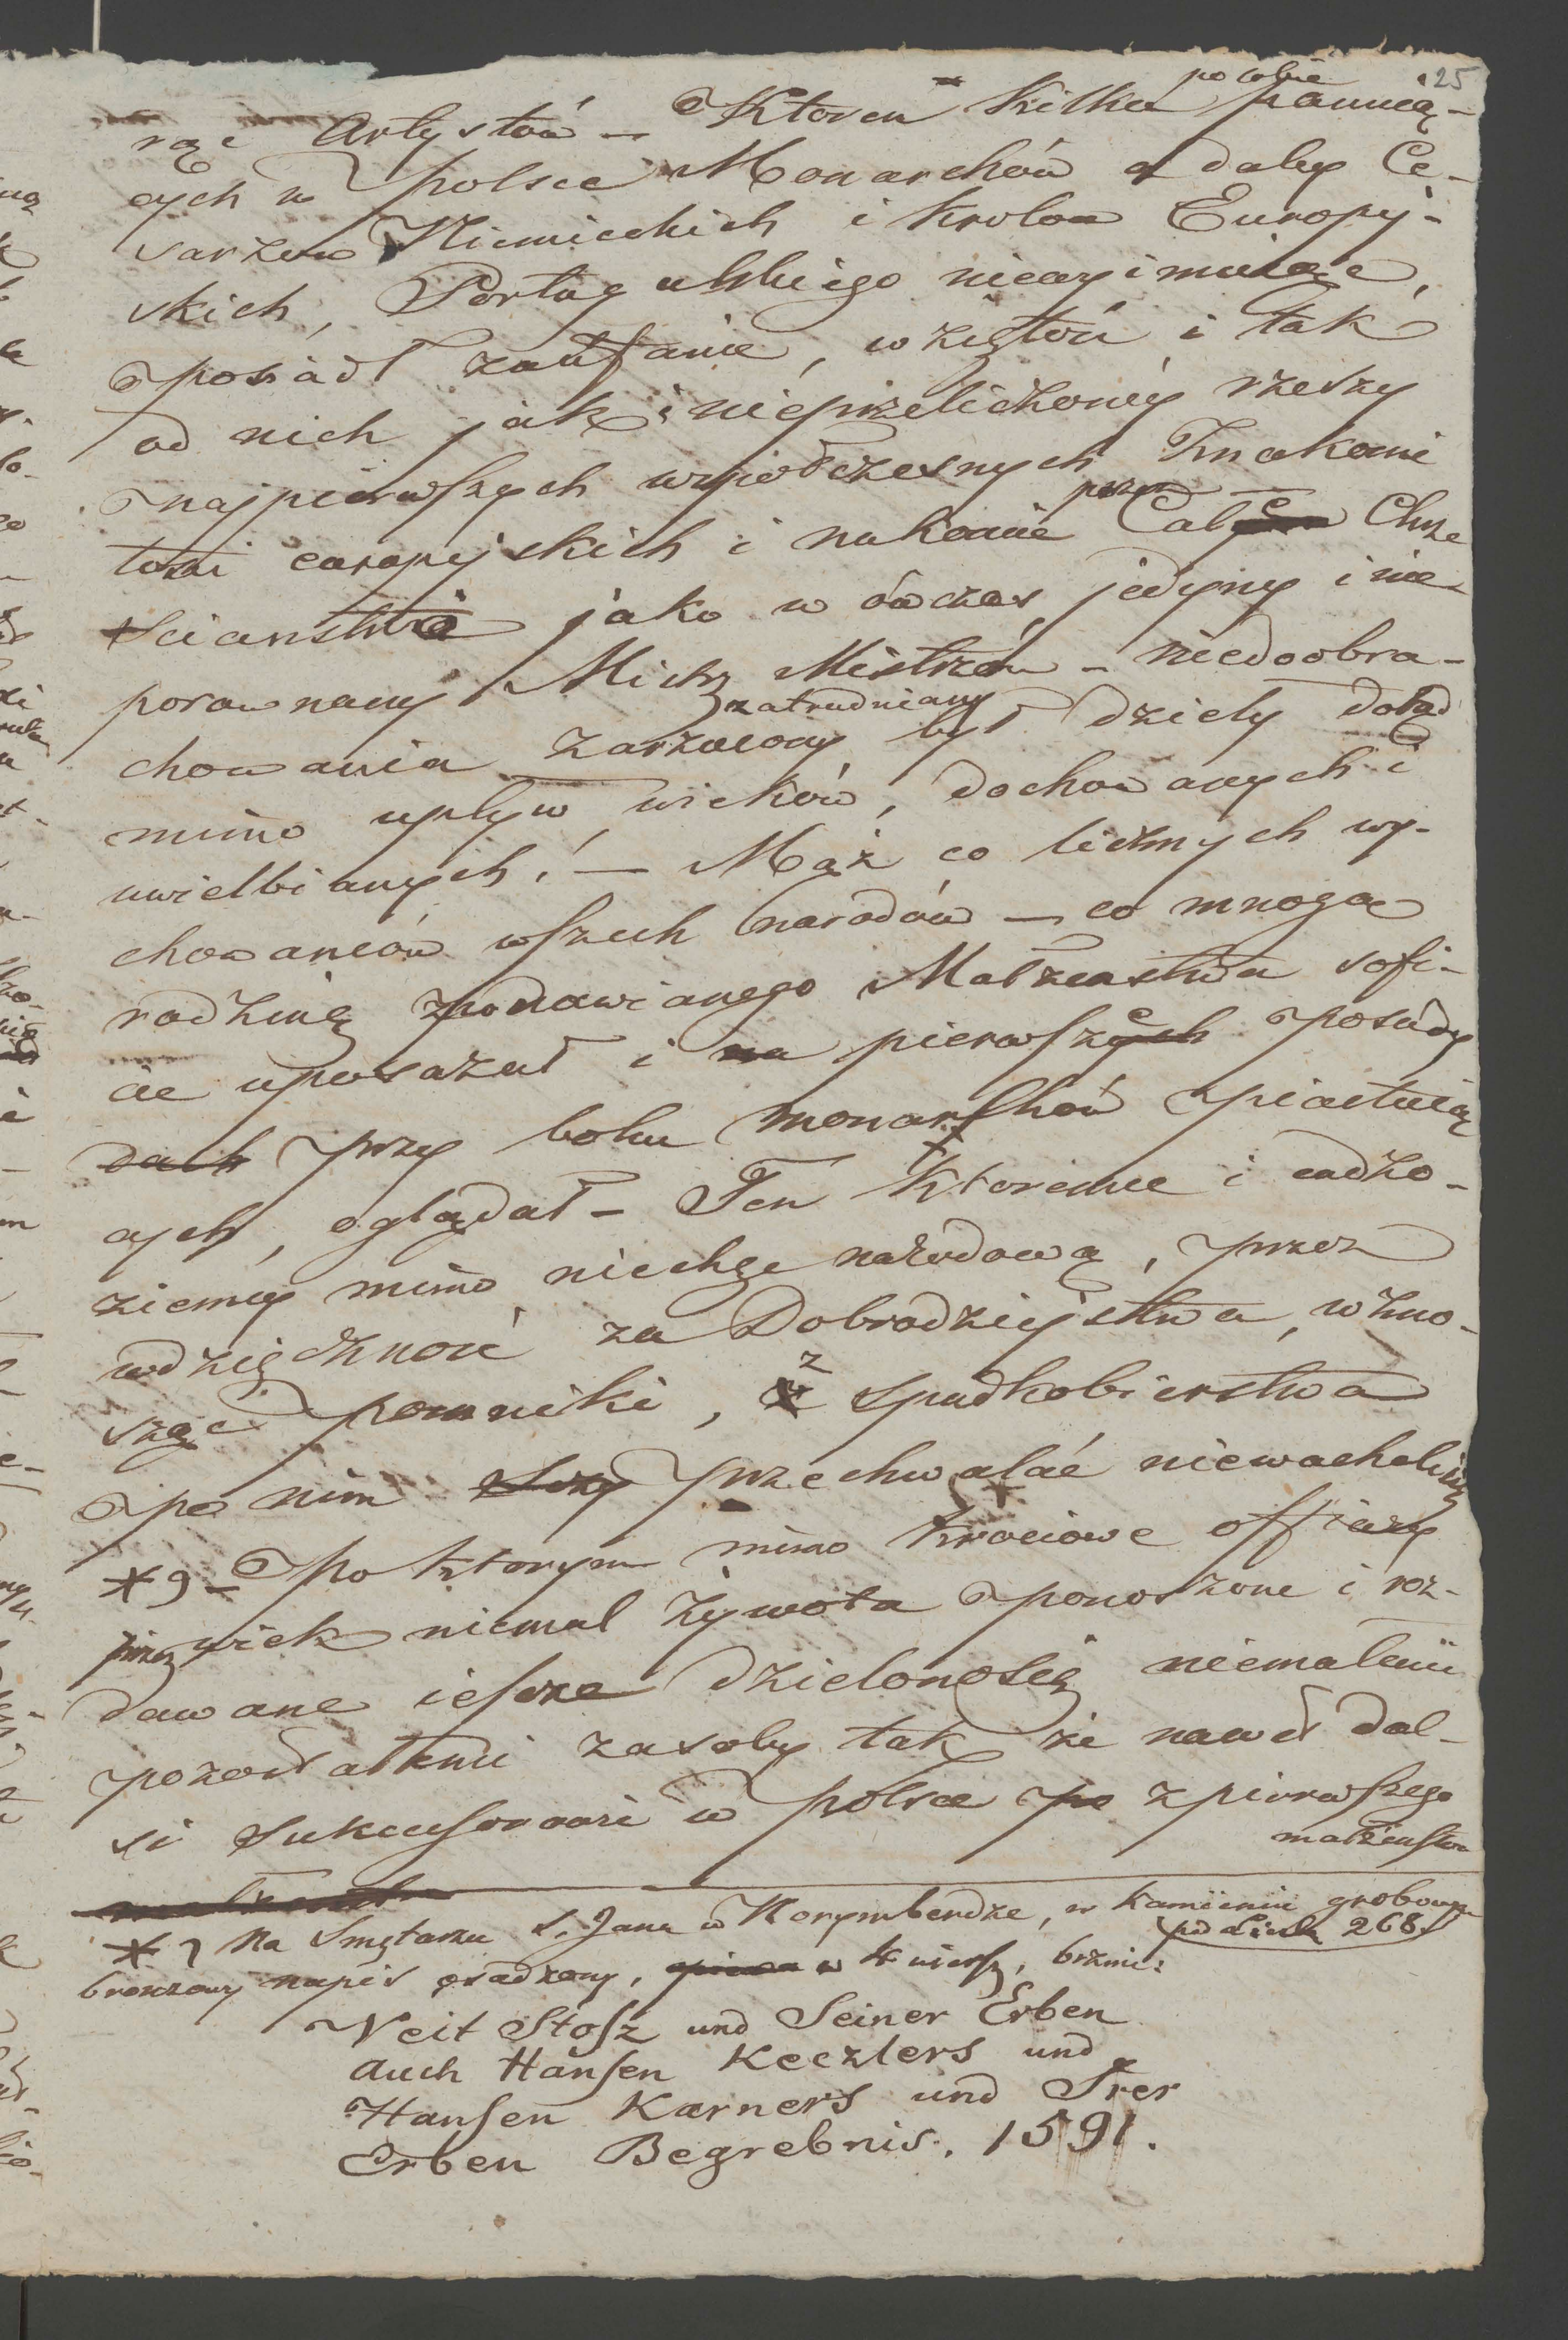 25
rząc Artystów – Ktoren kilku po sobie panują-
cych w Polsce Monarchów a daley Ce-
sarzow Niemieckich i krolow Europy-
skich, Portugalskiego niewyimuiąc,
posiadł zaufanie, wziętość i tak
od nich jak i nieprzeliczoney rzeszy
najpierwszych wspołczesnych Znakomi
tości europejskich i nakonie przez Całe Chrze
scianstwo jako w ówczas jedyny i nie
porownany Mistrz Mistrzów – niedoobra-
chowania zarzucony zatrudniany był dziely dotąd
mimo upływ wieków, dochowanych i
uwielbianych! – Mąż co licznych wy-
chowanców wszech narodów – co mnogą
rodzinę znodawianego Małżenstwa sofi-
cie uposażał i na pierwsze posady
dach przy boku monarchów piastuią
cych, oglądał – Ten ktoremu i cudzo-
ziemcy mimo niechęć narodową, przez
wdzięczność za Dobrodzieystwa, wzno-
sząc pomniki, z spadkobierstwa
po nim przechwalać niewachali się
* 9 – Po ktorym mimo krociowe offiary
przez wiek niemal żywota ponoszone i roz-
dawane ieszcze dzielonoscią niemałemi
pozostałemi zasoby tak że nawet dal-
si Sukcessorowie w Polsce po z pierwszego
małżenstwa
* 9 Na Smętarzu S. Jana w Norymberdze, w kamieniu grobowym
pod liczbą 268
bronzowy napis osadzony, w 4 wiersz, brzmi:
Veit Stosz und Seiner Erben
auch Hansen Keczlers und
Hansen Karners und Irer
Erben Begrebnis. 1591.